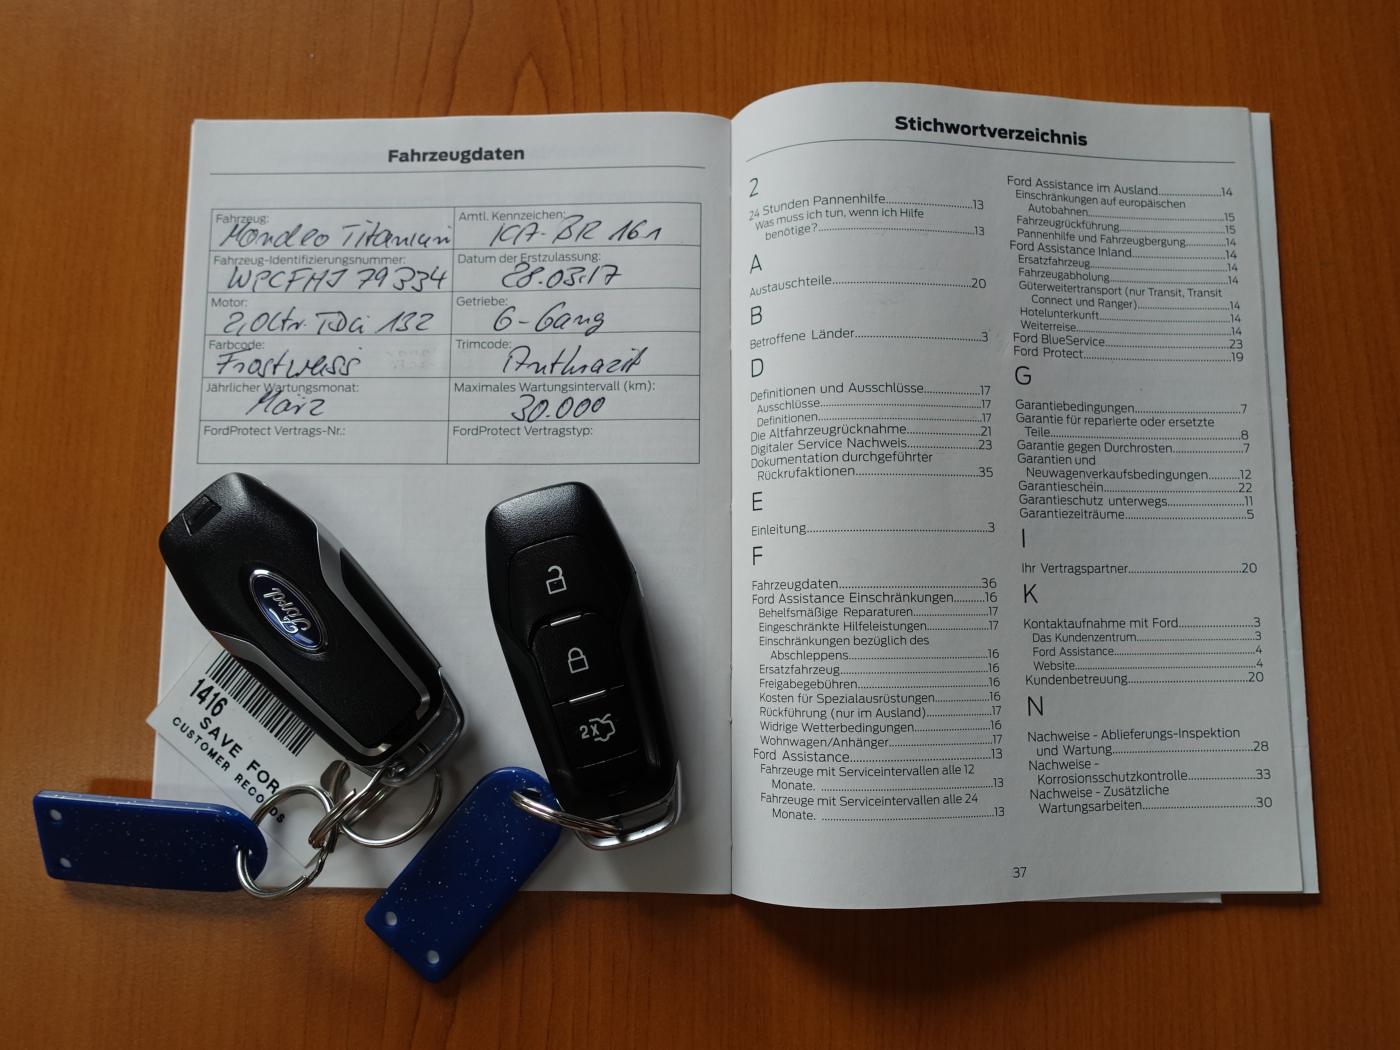 Fahrzeugdaten
Fahrzeug:
Mondeo Titanium
Amtl. Kennzeichen:
KA-BR 161
Fahrzeug-Identifizierungsnummer:
WPCFHJ 79334
Datum der Erstzulassung:
28.03.17
Motor:
2,0ltr. TDCi 132
Getriebe:
6-Gang
Farbcode:
Frostweiss
Trimcode:
Anthrazit
Jährlicher Wartungsmonat:
März
Maximales Wartungsintervall (km):
30.000
FordProtect Vertrags-Nr.:
FordProtect Vertragstyp:
Ford
1416
SAVE FOR
CUSTOMER RECORDS
2X
Stichwortverzeichnis
2
24 Stunden Pannenhilfe....................13
Was muss ich tun, wenn ich Hilfe
benötige?....................13
A
Austauschteile....................20
B
Betroffene Länder....................3
D
Definitionen und Ausschlüsse....................17
Ausschlüsse....................17
Definitionen....................17
Die Altfahrzeugrücknahme....................21
Digitaler Service Nachweis....................23
Dokumentation durchgeführter
Rückrufaktionen....................35
E
Einleitung....................3
F
Fahrzeugdaten....................36
Ford Assistance Einschränkungen..........16
Behelfsmäßige Reparaturen....................17
Eingeschränkte Hilfeleistungen....................17
Einschränkungen bezüglich des
Abschleppens....................16
Ersatzfahrzeug....................16
Freigabegebühren....................16
Kosten für Spezialausrüstungen....................16
Rückführung (nur im Ausland)....................17
Widrige Wetterbedingungen....................16
Wohnwagen/Anhänger....................17
Ford Assistance....................13
Fahrzeuge mit Serviceintervallen alle 12
Monate. ....................13
Fahrzeuge mit Serviceintervallen alle 24
Monate. ....................13
Ford Assistance im Ausland....................14
Einschränkungen auf europäischen
Autobahnen....................15
Fahrzeugrückführung....................15
Pannenhilfe und Fahrzeugbergung..........14
Ford Assistance Inland....................14
Ersatzfahrzeug....................14
Fahrzeugabholung....................14
Güterweitertransport (nur Transit, Transit
Connect und Ranger)....................14
Hotelunterkunft....................14
Weiterreise....................14
Ford BlueService....................23
Ford Protect....................19
G
Garantiebedingungen....................7
Garantie für reparierte oder ersetzte
Teile....................8
Garantie gegen Durchrosten....................7
Garantien und
Neuwagenverkaufsbedingungen..........12
Garantieschein....................22
Garantieschutz unterwegs....................11
Garantiezeiträume....................5
I
Ihr Vertragspartner....................20
K
Kontaktaufnahme mit Ford....................3
Das Kundenzentrum....................3
Ford Assistance....................4
Website....................4
Kundenbetreuung....................20
N
Nachweise - Ablieferungs-Inspektion
und Wartung....................28
Nachweise -
Korrosionsschutzkontrolle....................33
Nachweise - Zusätzliche
Wartungsarbeiten....................30
37